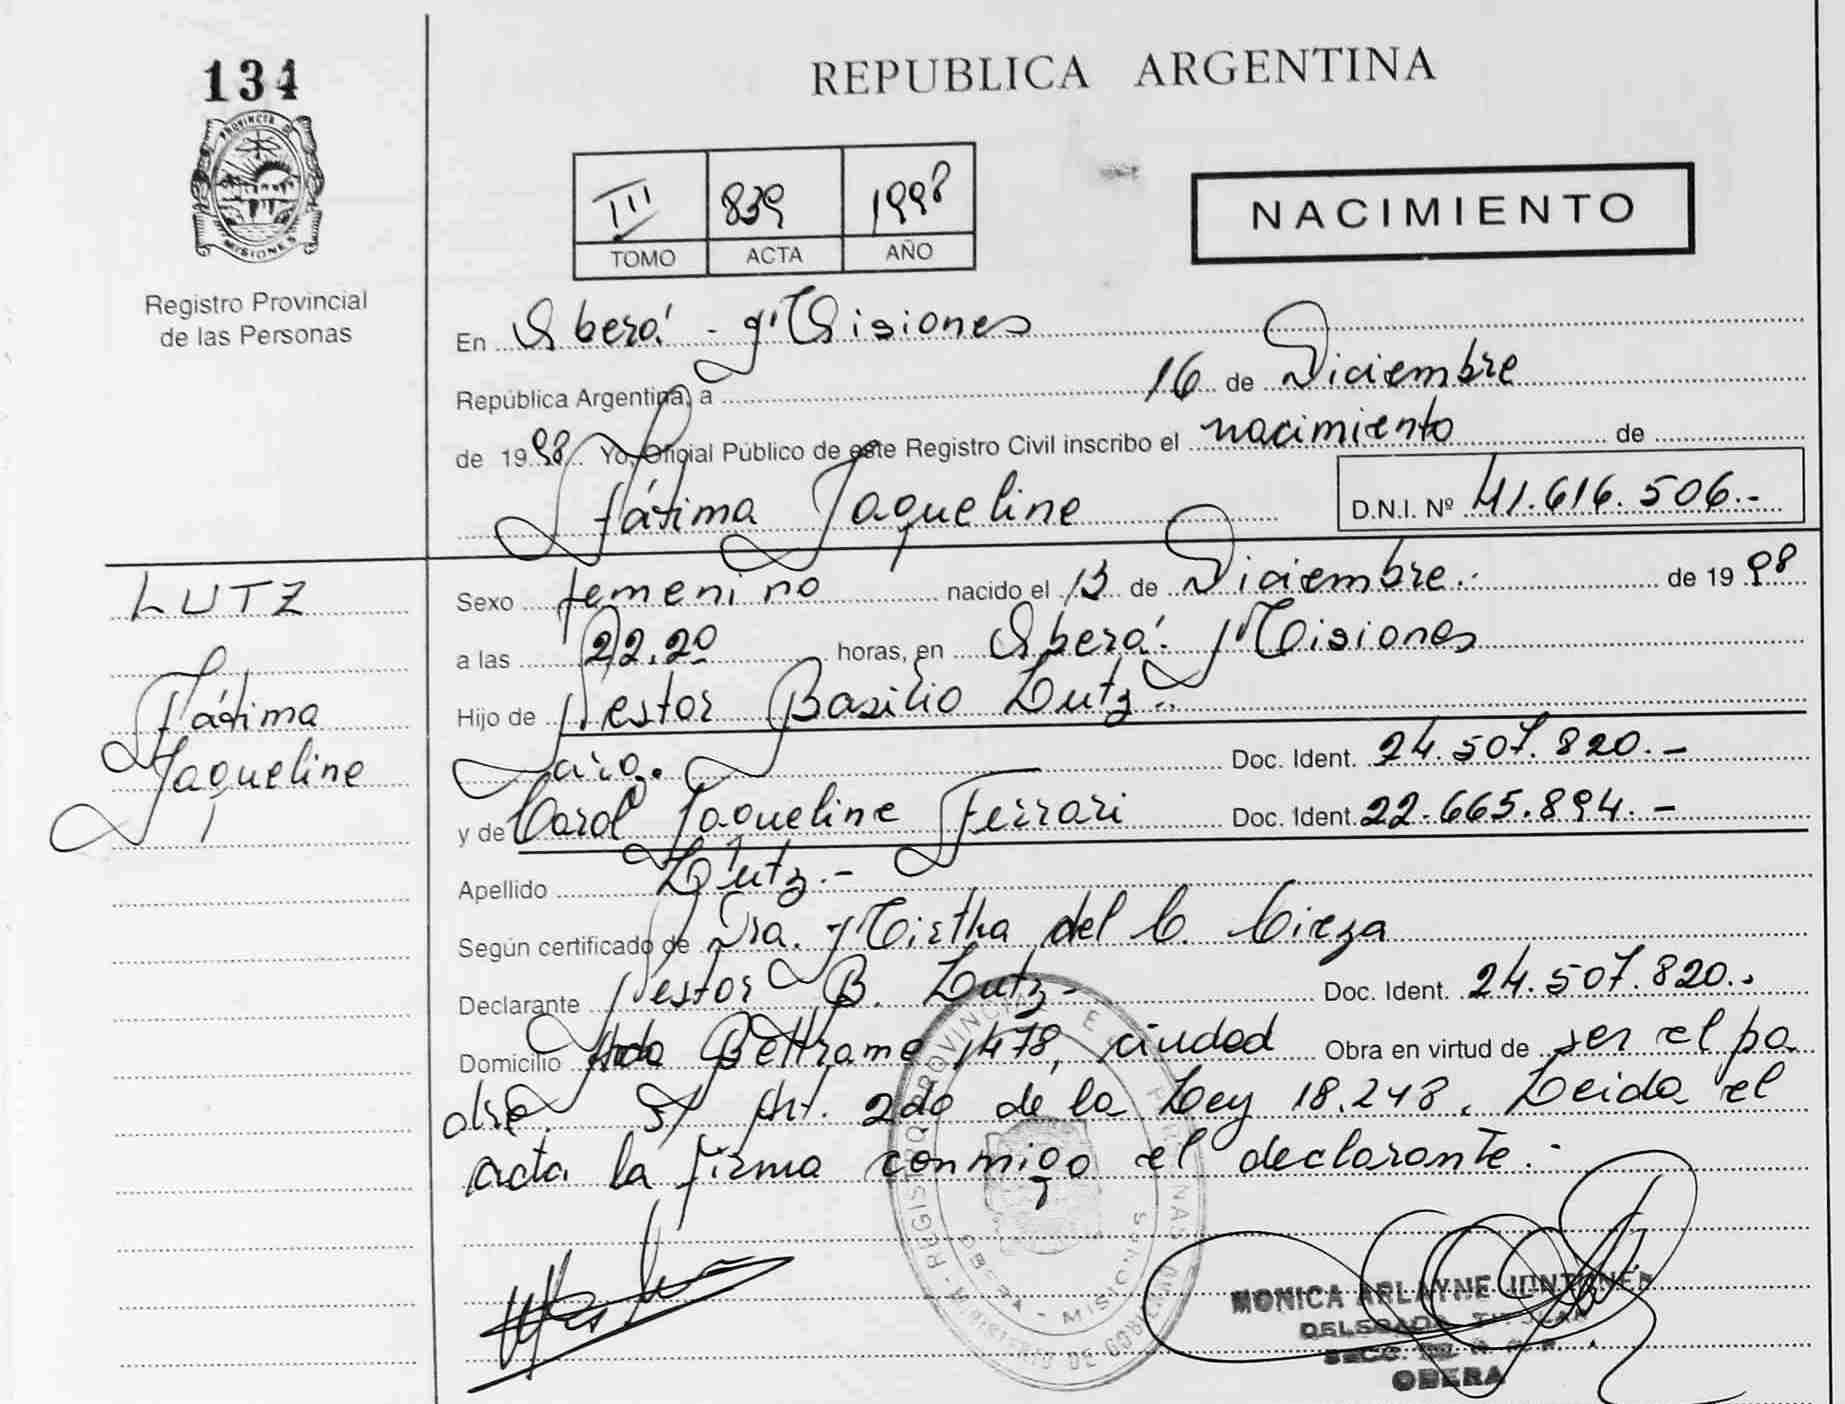 134
PROVINCIA DE
MISIONES
Registro Provincial
de las Personas
REPUBLICA ARGENTINA
III 839 1998
TOMO ACTA AÑO
NACIMIENTO
En Oberá - Misiones
República Argentina, a 16 de Diciembre
de 1998 Yo, Oficial Público de este Registro Civil inscribo el nacimiento de
Fátima Jaqueline D.N.I. Nº 41.616.506.-
LUTZ
Fátima
Jaqueline
Sexo femenino nacido el 13 de Diciembre.. de 1998
a las 22.20 horas, en Oberá. Misiones
Hijo de Nestor Basilio Lutz..
Doc. Ident. 24.507.820.-
y de Carol Jaqueline Ferrari Doc. Ident. 22.665.894.-
Apellido Lutz.-
Según certificado de Dra. Mirtha del C. Cieza
Declarante Nestor B. Lutz- Doc. Ident. 24.507.820..
Domicilio Beltrame 1478, ciudad Obra en virtud de ser el pa
dre. S/ Art. 2do de la Ley 18.248. Leida el
acta la firma conmigo el declarante.-
REGISTRO PROVINCIAL DE
OBERA - MISIONES
MONICA ARLAYNE
DELEGADA TITULAR
SECC.
OBERA